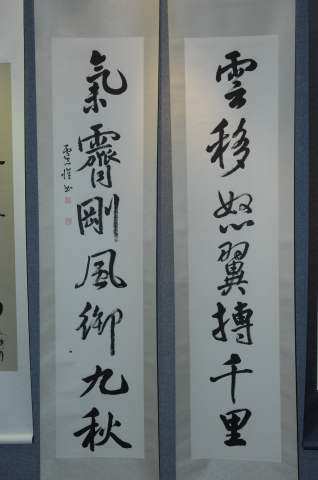 雲移怒翼搏千里
氣霽剛風御九秋